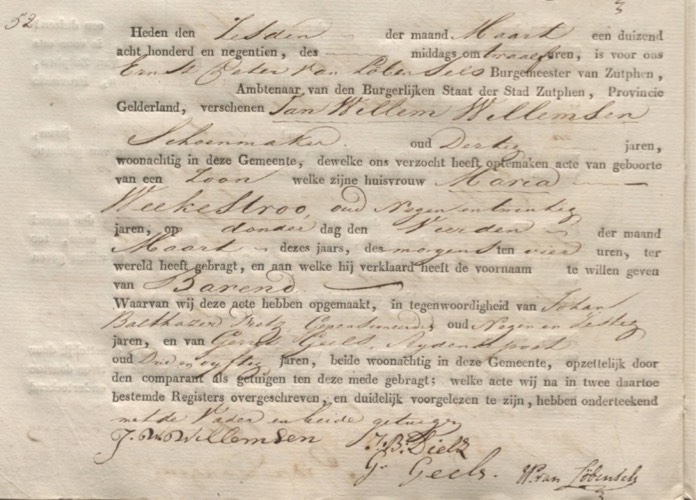 52
Heden den Zesden der maand Maart een duizend
acht honderd en negentien, des middags om twaalf uren, is voor ons
Ernst Peter van Löbensels Burgemeester van Zutphen,
Ambtenaar van den Burgerlijken Staat der Stad Zutphen, Provincie
Gelderland, verschenen Jan Willem Willemsen
Schoenmaker oud Dertig jaren,
woonachtig in deze Gemeente, dewelke ons verzocht heeft optemaken acte van geboorte
van een Zoon welke zijne huisvrouw Maria
Weekestroo, oud Negen en twintig
jaren, op donder dag den Vierden der maand
Maart dezes jaars, des morgens ten vier uren, ter
wereld heeft gebragt, en aan welke hij verklaard heeft de voornaam te willen geven
van Barend.
Waarvan wij deze acte hebben opgemaakt, in tegenwoordigheid van Johan
Balthazar Dietz Gepensioneerde, oud Negen en Zestig
jaren, en van Gerrit Geels,
oud Drie en vyftig jaren, beide woonachtig in deze Gemeente, opzettelijk door
den comparant als getuigen ten deze mede gebragt; welke acte wij na in twee daartoe
bestemde Registers overgeschreven, en duidelijk voorgelezen te zijn, hebben onderteekend
met de Vader en beide getuigen
J. W. Willemsen
J. B. Dietz
G. Geels.
van Löbensels